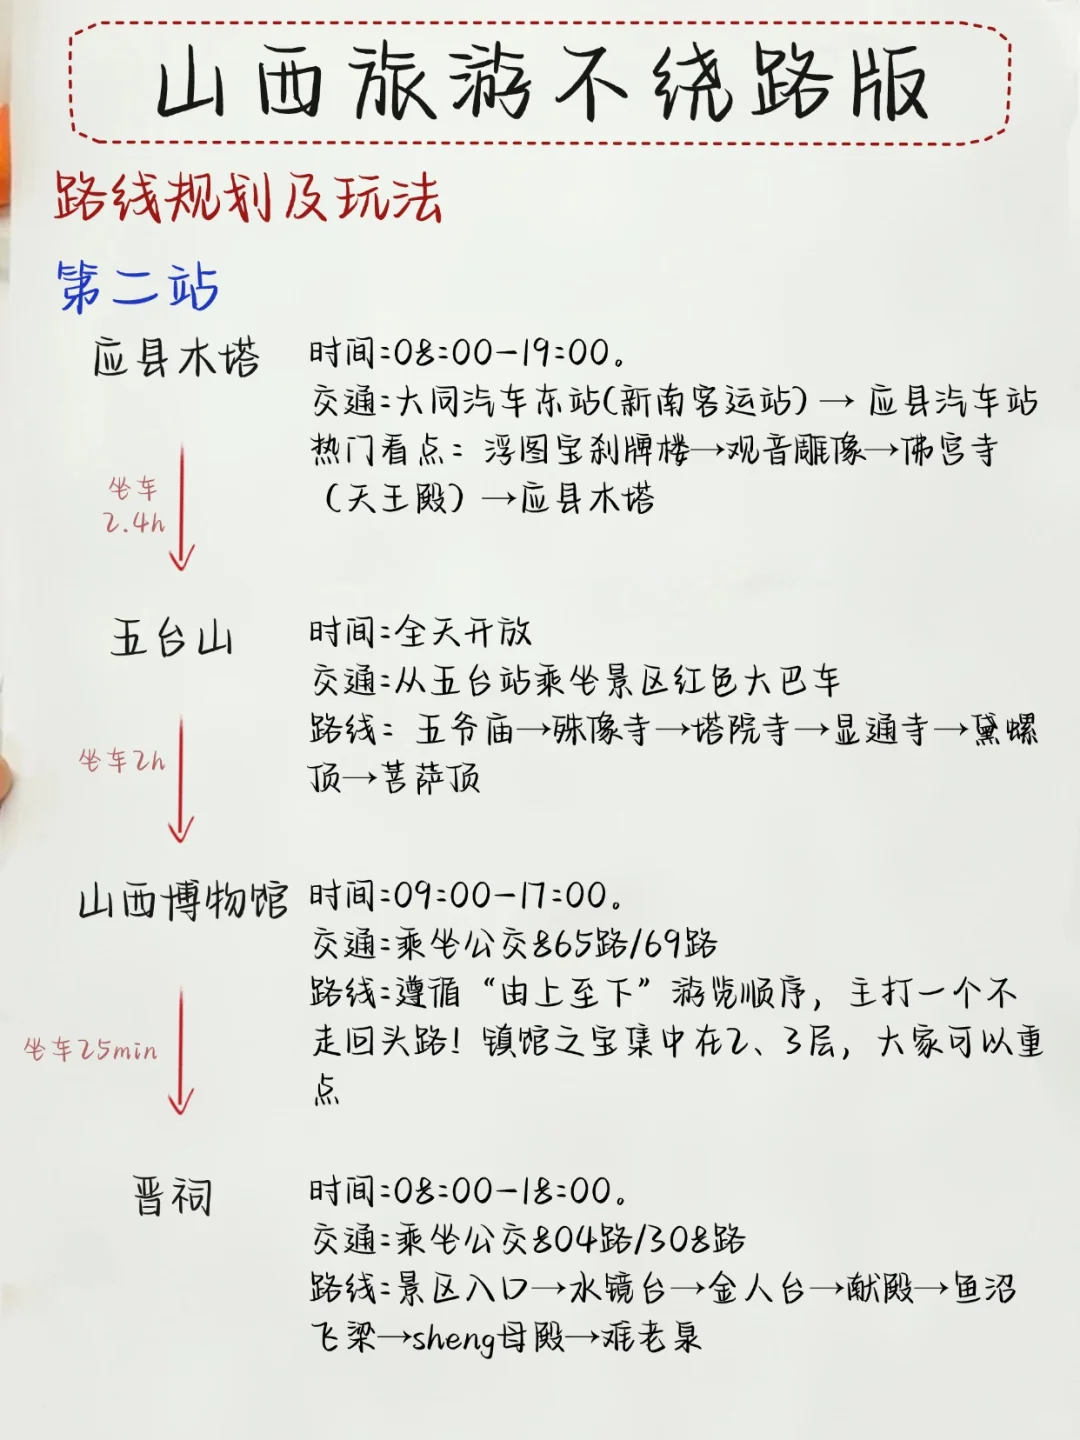 山西旅游不绕路版
路线规划及玩法
第二站
应县木塔
时间:08:00-19:00。
交通:大同汽车东站(新南客运站)→ 应县汽车站
热门看点：浮图宝刹牌楼→观音雕像→佛宫寺
（天王殿）→应县木塔
坐车
2.4h
五台山
时间:全天开放
交通:从五台站乘坐景区红色大巴车
路线：五爷庙→殊像寺→塔院寺→显通寺→黛螺
顶→菩萨顶
坐车2h
山西博物馆
时间:09:00-17:00。
交通:乘坐公交865路/69路
路线:遵循“由上至下”游览顺序，主打一个不
走回头路！镇馆之宝集中在2、3层，大家可以重
点
坐车25min
晋祠
时间:08:00-18:00。
交通:乘坐公交804路/308路
路线:景区入口→水镜台→金人台→献殿→鱼沼
飞梁→sheng母殿→难老泉